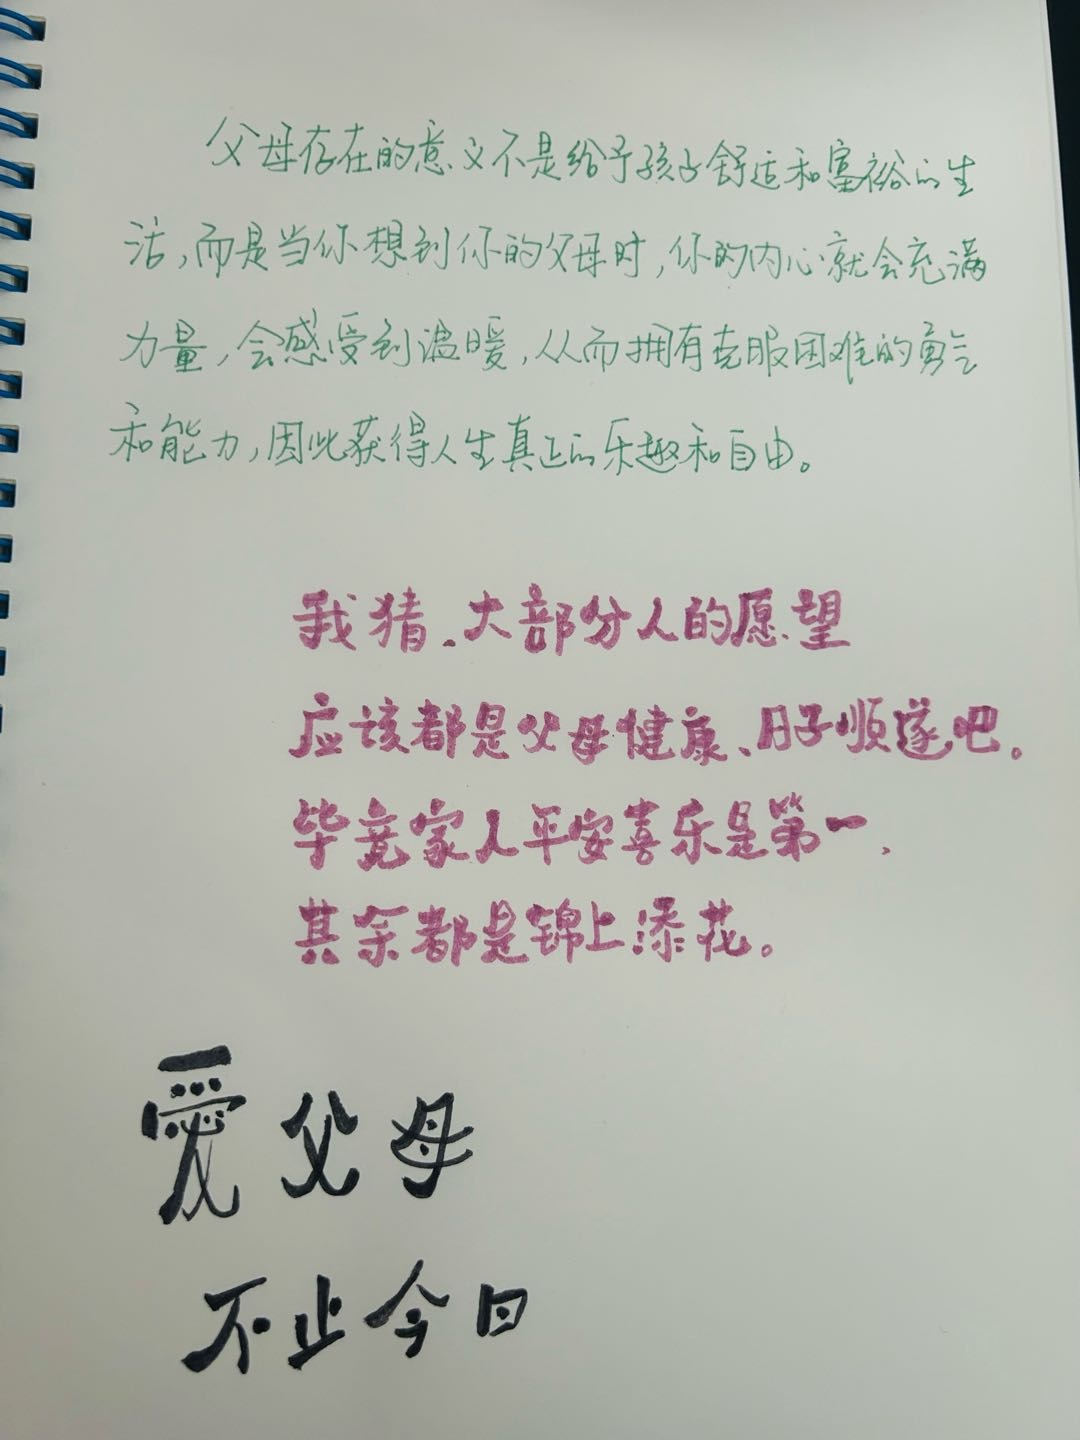 父母存在的意义不是给予孩子舒适和富裕的生
活,而是当你想到你的父母时,你的内心就会充满
力量,会感受到温暖,从而拥有克服困难的勇气
和能力,因此获得人生真正的乐趣和自由。
我猜、大部分人的愿望
应该都是父母健康、日子顺遂吧。
毕竟家人平安喜乐是第一、
其余都是锦上添花。
爱父母
不止今日